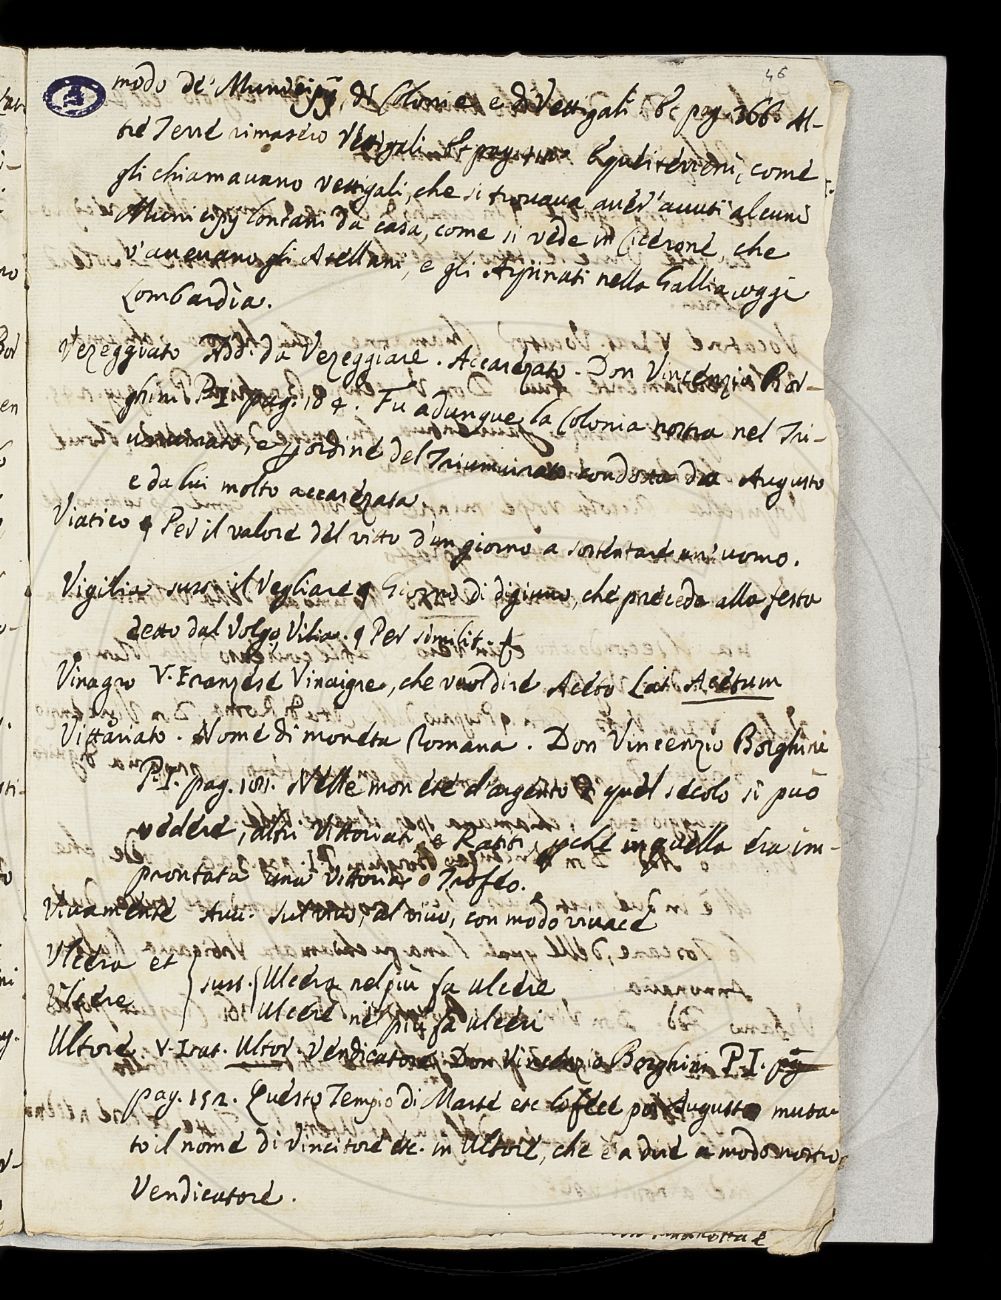 46
modo de' Municipj, di Colonie e di Vettigali etc pag. 366. Al-
tre Terre rimasero Vettigali etc pag. E quest'erano, come
gli chiamavano vettigali, che si trovava aver' avuti alcuni
Municipj lontani da casa, come si vede in Cicerone, che
v'avevano gli Atellani, e gli Arpinati nella Gallia, oggi
Lombardia.
Vezeggiato Add. da Vezeggiare. Accarezzato. Don Vincenzio Bor-
ghini P. I pag. 184. Fu adunque la Colonia nostra nel Tri-
umvirato, e per ordine del Triumvirato condotta da Augusto
e da lui molto accarezzata
Viatico ¶ Per il valore del vitto d'un giorno a sostentare un' uomo.
Vigilia sust. il Vegliare ¶ Giorno di digiuno, che precede alla festa
detto dal Volgo Vilia. ¶ Per similit.
Vinagro V. Franzese Vinaigre, che vuol dire Aceto Lat. Acetum
Vittoriato. Nome di moneta Romana. Don Vincenzio Borghini
P. I. pag. 181. Nelle monete d'argento di quel secolo si può
vedere, altri Vittoriati e Ratiti, perchè in quella era im-
prontata una Vittoria o Trofeo.
Vivamente Avv. sul vivo, al vivo, con modo vivace
Ulcera et
Ulcere
sust. Ulcera nel più fa ulcere
Ulcere nel più fa ulceri
Ultore V. Lat. Ultor. Vendicatore Don Vincenzio Borghini P. I. pag
pag. 152. Questo Tempio di Marte etc lo fece poi Augusto muta-
to il nome di Vincitore etc. in Ultore, che è a dire a modo nostro
Vendicatore.